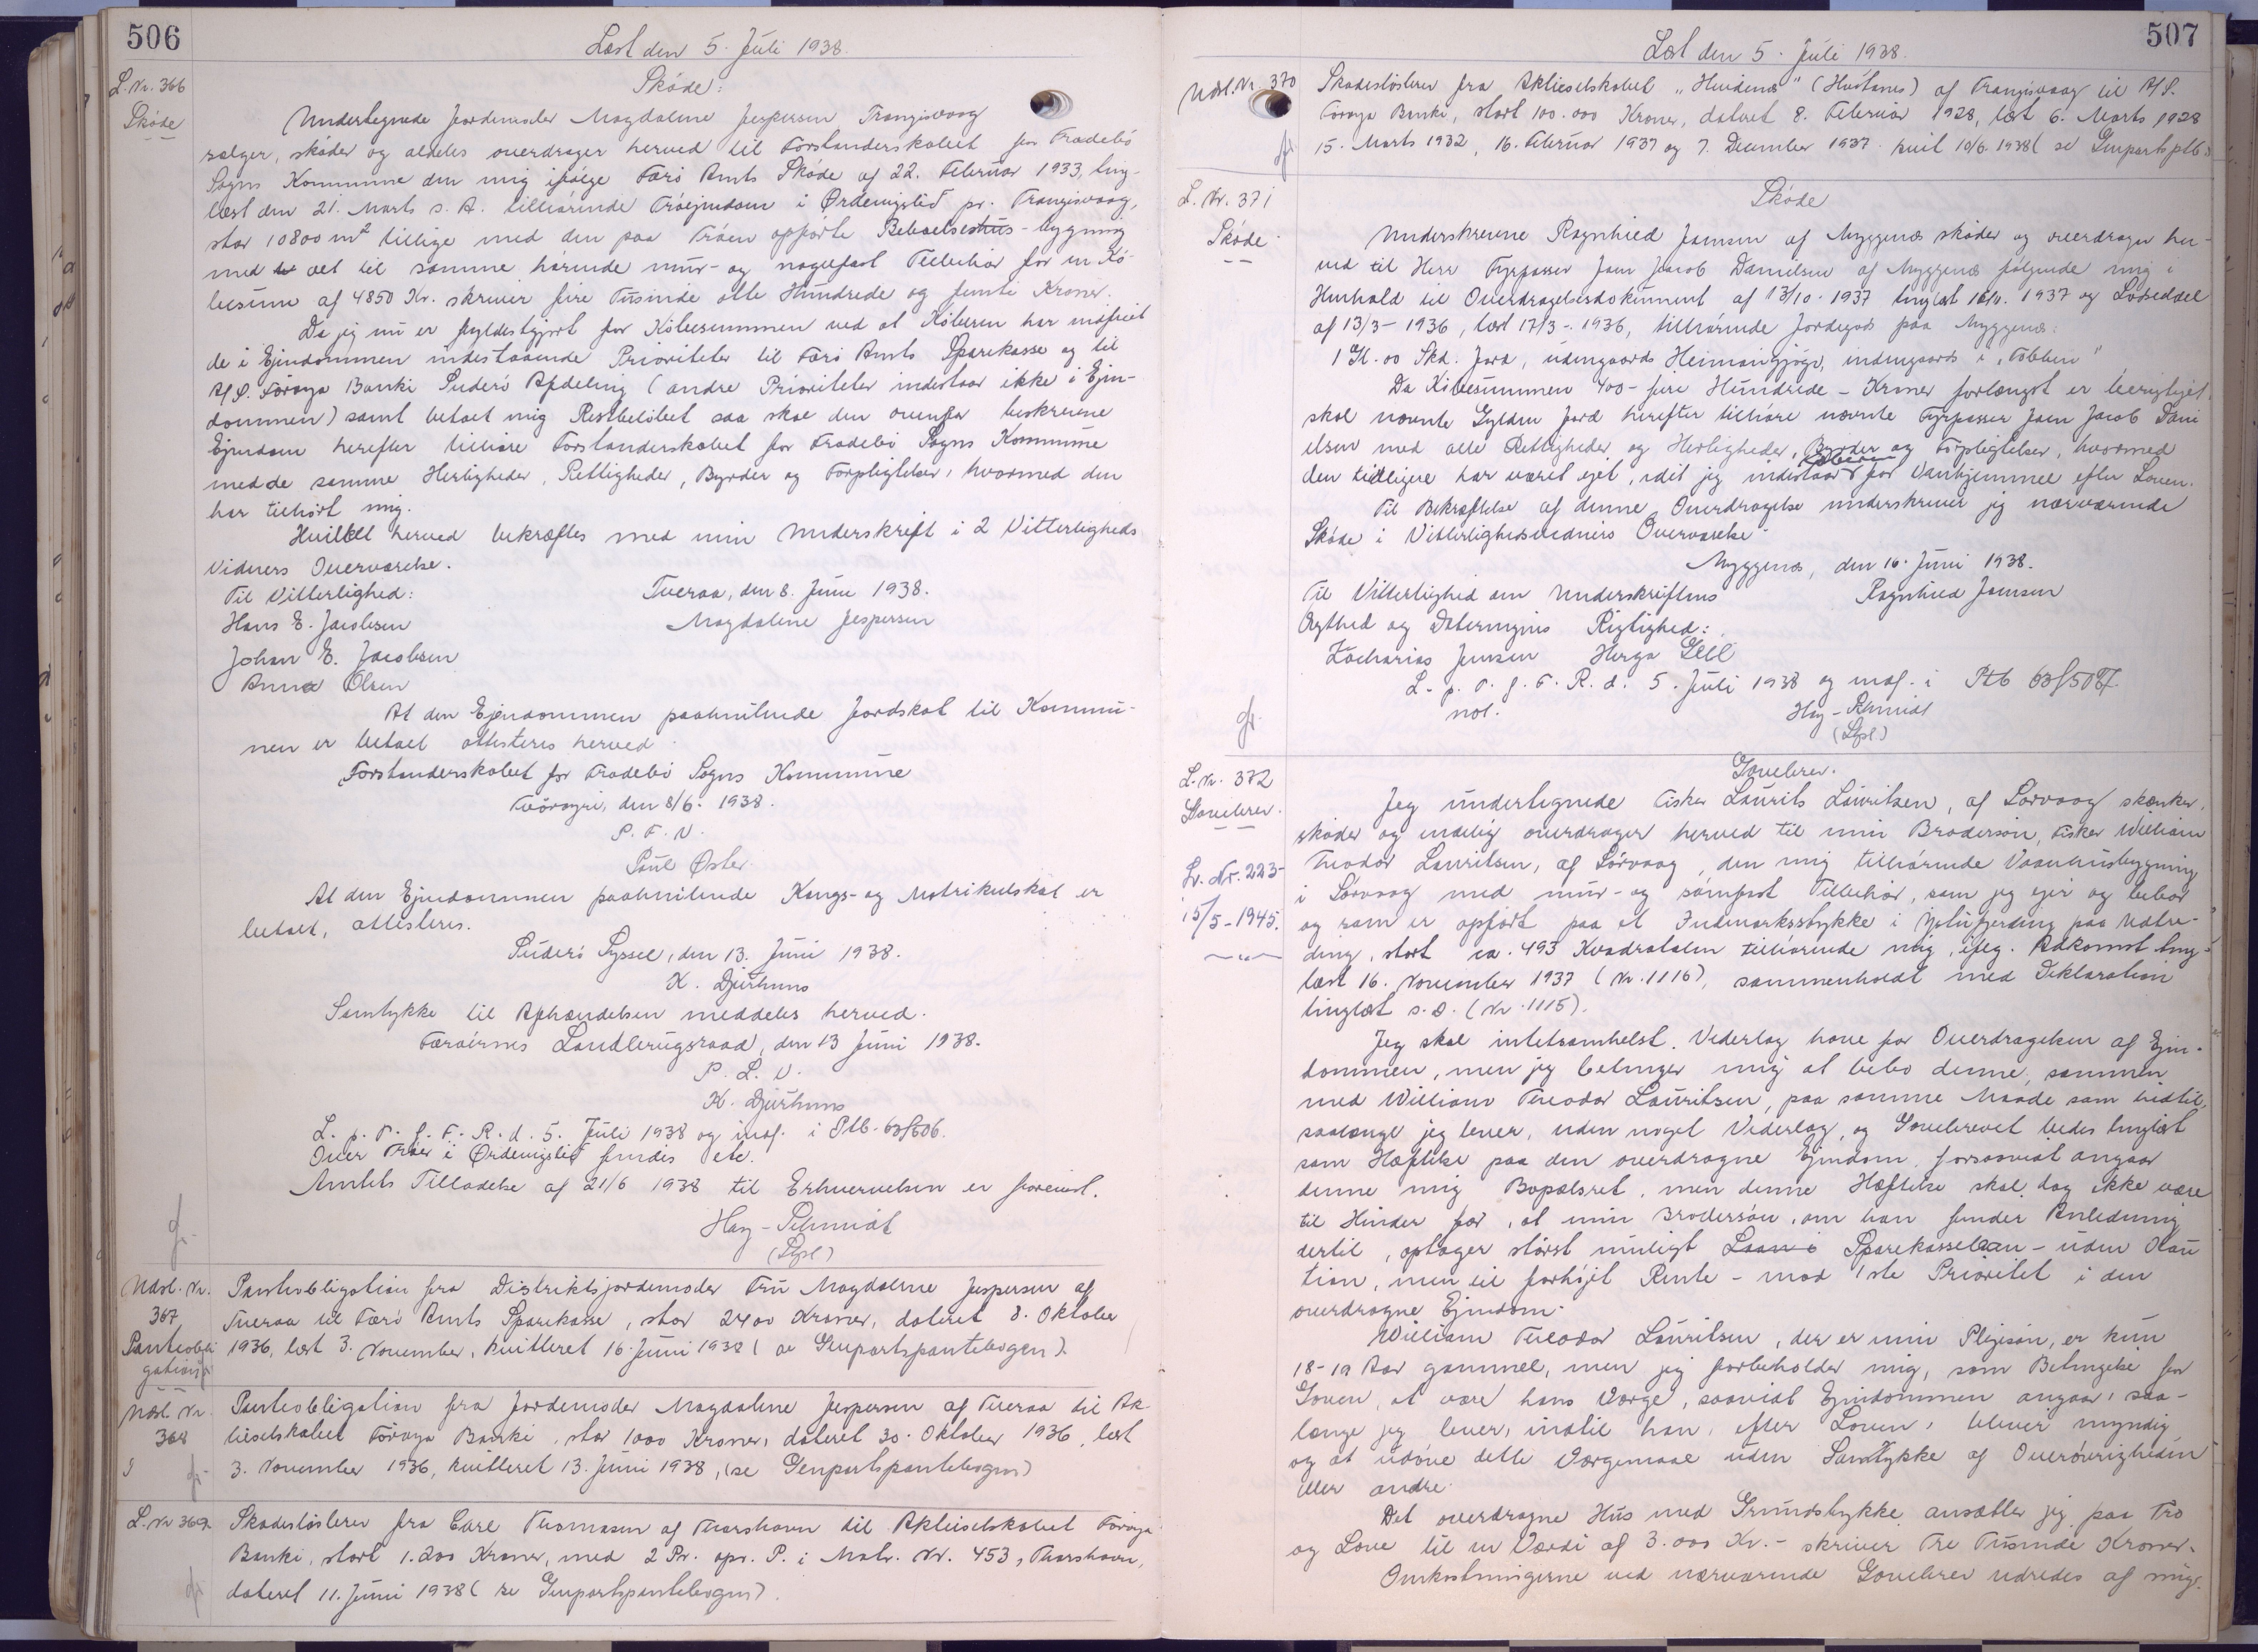 506
Læst den 5. Juli 1938.
L. Nr. 366
Skøde
Skøde:
Undertegnede Jordemoder Magdalene Jespersen Trangisvaag
sælger, skøder og aldeles overdrager herved til Forstanderskabet for Frodebø
Sogns Kommune den mig ifølge Færø Amts Skøde af 22. Februar 1933, ting-
læst den 21. Marts s. A. tilhørende Trøejendom i Ørdeingslid pr. Trangisvaag,
stor 10800 m² tillige med den paa Trøen opførte Beboelseshus-bygning
med alt til samme hørende mur- og nagelfast Tilbehør for en Kø-
besum af 4850 Kr. skriver fire Tusinde otte Hundrede og femti Kroner.
Da jeg nu er fyldestgjort for Købesummen ved at Køberen har indfriet
de i Ejendommen indestaaende Prioriteter til Færø Amts Sparekasse og til
A/S. Føroya Banki Suderø Afdeling (andre Prioriteter indestaar ikke i Ejen-
dommen) samt betalt mig Restbeløbet saa skal den ovenfor beskrevne
Ejendom herefter tilhøre Forstanderskabet for Frodebø Sogns Kommune
med de samme Herligheder, Rettigheder, Byrder og Forpligtelser, hvormed den
har tilhørt mig.
Hvilket herved bekræftes med min Underskrift i 2 Vitterligheds
vidners Overværelse.
Til Vitterlighed:
Tveraa, den 8. Juni 1938.
Hans E. Jacobsen
Magdalene Jespersen
Johan E. Jacobsen
Anna Olsen
At den Ejendommen paahvilende Jordskat til Kommu-
nen er betalt attesteres herved
Forstanderskabet for Frodebø Sogns Kommune
Tvøroyri, den 8/6. 1938.
P. F. V.
Poul Øster.
At den Ejendommen paahvilende Kongs- og Matrikulskat er
betalt, attesteres.
Suderø Syssel, den 13. Juni 1938.
K. Djurhuus
Samtykke til Afhændelsen meddeles herved.
Færøernes Landbrugsraad, den 13 Juni 1938.
P. L. V.
K. Djurhuus
L. p. T. f. F. R. d. 5. Juli 1938 og indf. i Ptb. 63f506.
Over Trøer i Ørdeingslid findes etc.
Amtets Tilladelse af 21/6 1938 til Erhvervelsen er forevist.
Hey-Schmidt
(Lfpl)
Udsl. Nr.
367
Panteobli
gation
Panteobligation fra Distriktsjordemoder Fru Magdalene Jespersen af
Tveraa til Færø Amts Sparekasse, stor 2400 Kroner, dateret 8. Oktober
1936, læst 3. November, kvitteret 16 Juni 1938 (se Genpartspantebogen).
Udsl. Nr.
368
Panteobligation fra Jordemoder Magdalene Jespersen af Tveraa til Ak-
tieselskabet Føroya Banki, stor 1000 Kroner, dateret 30. Oktober 1936, læst
3. November 1936, kvitteret 13. Juni 1938, (se Genpartspantebogen)
L. Nr 369.
Skadesløsbrev fra Carl Thomasen af Thorshavn til Aktieselskabet Føroya
Banki, stort 1.200 Kroner, med 2 Pr. opr. P. i Matr. Nr. 453, Thorshavn,
dateret 11. Juni 1938 (se Genpartspantebogen).
507
Læst den 5. Juli 1938.
Udsl. Nr. 370
Skadesløsbrev fra Aktieselskabet "Hvidenæs" (Hvitanes) af Trangisvaag til A/S.
Føroya Banki, stort 100.000 Kroner, dateret 8. Februar 1928, læst 6. Marts 1928
15. Marts 1932, 16. Februar 1937 og 7. December 1937. kvit 10/6. 1938 (se Genpartsptb.)
L. Nr. 371
Skøde
Skøde
Underskrevne Ragnhild Joensen af Myggenæs skøder og overdrager her-
ved til Herr Fyrpasser Joen Jacob Danielsen af Myggenæs følgende mig i
Henhold til Overdragelsesdokument af 13/10. 1937 tinglæst 16/11. 1937 og Lodseddel
af 13/3- 1936, læst 17/3-. 1936, tilhørende Jordegods paa Myggenæs:
1 Gl. 00 Skd. Jord, udengaards Heimangjógv, indengaards i "Tobben"
Da Købesummen 400- fire Hundrede - Kroner forlængst er berigtiget,
skal nævnte Gylden Jord herefter tilhøre nævnte Fyrpasser Joen Jacob Dani
elsen med alle Rettigheder og Herligheder, Byrder og Forpligtelser, hvormed
den tidligere har været ejet, idet jeg indestaar Køberen for Vanhjemmel efter Loven.
Til Bekræftelse af denne Overdragelse underskriver jeg nærværende
Skøde i Vitterlighedsvidners Overværelse.
Myggenæs, den 16. Juni 1938.
Til Vitterlighed om Underskriftens
Ragnhild Joensen
Ægthed og Dateringens Rigtighed:
Zacharias Jensen Herga
L. p. T. f. F. R. d. 5. Juli 1938 og indf. i Ptb 63f507.
not.
Hey-Schmidt
(Lfpl)
L. Nr. 372
Gavebrev.
Lr. Nr. 223-
15/5-1945.
Gavebrev.
Jeg undertegnede Fisker Laurits Lauritsen, af Sørvaag skænker,
skøder og endelig overdrager herved til min Brodersøn, Fisker William
Theodor Lauritsen, af Sørvaag, den mig tilhørende Vaanhusbygning
i Sørvaag med mur- og sømfast Tilbehør, som jeg ejer og bebor
og som er opført paa et Indmarksstykke i paa Udbre-
ding, stort ca. 493 Kvadratalen tilhørende mig, iflg. Adkomst ting-
læst 16. November 1937 (Nr. 1116), sammenholdt med Deklaration
tinglæst s. D. (Nr. 1115).
Jeg skal intetsomhelst Vederlag have for Overdragelsen af Ejen-
dommen, men jeg betinger mig at bebo denne, sammen
med William Theodor Lauritsen, paa samme Maade som hidtil,
saalænge jeg lever, uden noget Vederlag, og Gavebrevet bedes tinglæst
som Hæftelse paa den overdragne Ejendom, forsaavidt angaar
denne mig Bopælsret, men denne Hæftelse skal dog ikke være
til Hinder for, at min Brodersøn, om han finder Anledning
dertil, optager størst muligt Laan i Sparekasselaan - uden Kau
tion, men til forhøjet Rente - mod 1ste Prioritet i den
overdragne Ejendom.
William Theodor Lauritsen, der er min Plejesøn, er kun
18-19 Aar gammel, men jeg forbeholder mig, som Betingelse for
Gaven, at være hans Værge, saavidt Ejendommen angaar, saa-
længe jeg lever, indtil han, efter Loven, bliver myndig
og at udøve dette Værgemaal uden Samtykke af Overøvrigheden
eller andre.
Det overdragne Hus med Grundstykke ansætter jeg paa Tro
og Love til en Værdi af 3.000 Kr. - skriver Tre Tusinde Kroner.
Omkostningerne ved nærværende Gavebrev udredes af mig.